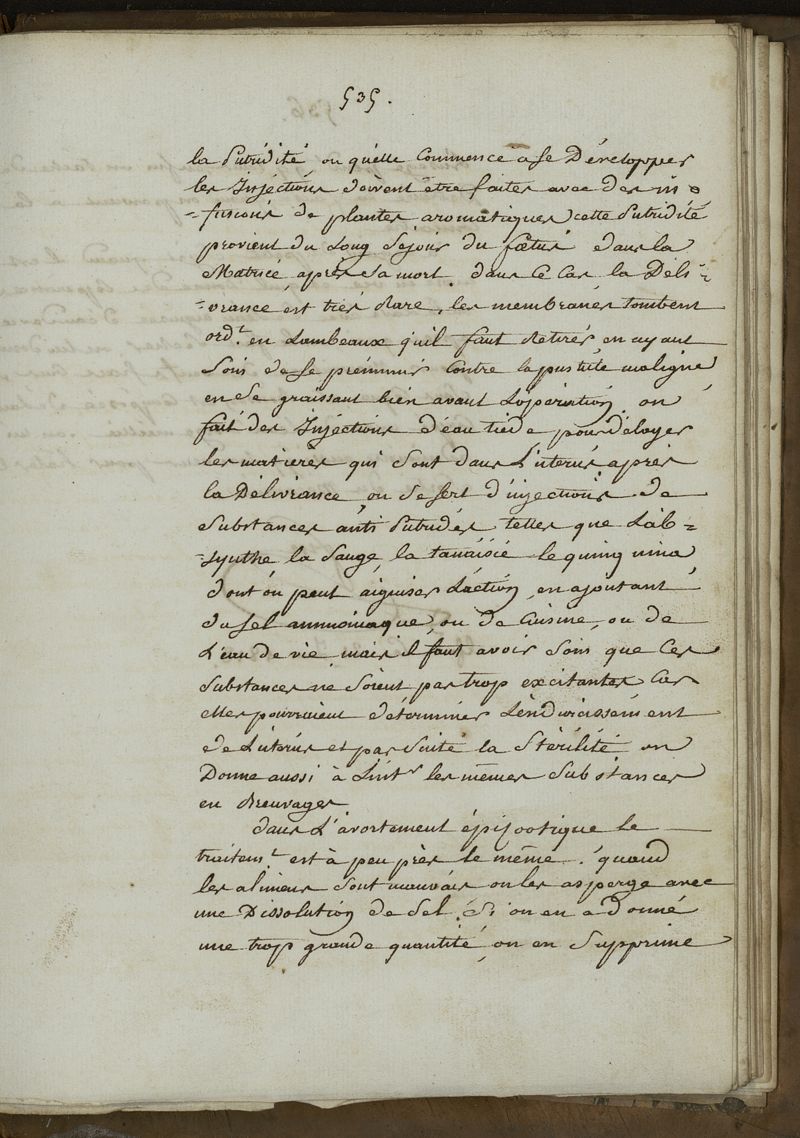 535.
la Putridité, ou quelle Commence a se Développer
les Injections doivent être faites avec des in=
=fusions de plantes aromatiques cette Putridité
provient du Long Séjour du fœtus dans la
Matrice après sa mort. dans ce Cas la Déli=
=vrance est très Rare, les membranes tombent
ord.t en Lambeaux qu'il faut Retirer, en ayant
Soin de se prémunir Contre la pustule maligne
en se graissant bien avant L'opération. on
fait des Injections d'eau tiède pour délayer
les matières qui Sont dans L'uterus, après
la Délivrance, on se sert d'injections de
Substances anti Putrides telles que L'ab=
=synthe la Sauge, la tanaisie le quinquina
dont on peut aiguiser L'action, en ajoutant
du sel ammoniaque, ou de Cuisine, ou de
L'eau de vie, mais il faut avoir Soin que Ces
Substances ne Soient pas trop excitantes Car
elles pourraient déterminer L'endurcissement
de L'uterus et par Suite la Stérilité on
Donne aussi à L'int.r les mêmes Substances
en Breuvages
dans L'avortement épizootique le
traitem.t est à peu près le même. quand
les alimens Sont mauvais on les asperge avec
une Dissolution de Sel. Si on en a donné
une trop grande quantité, on en Supprime